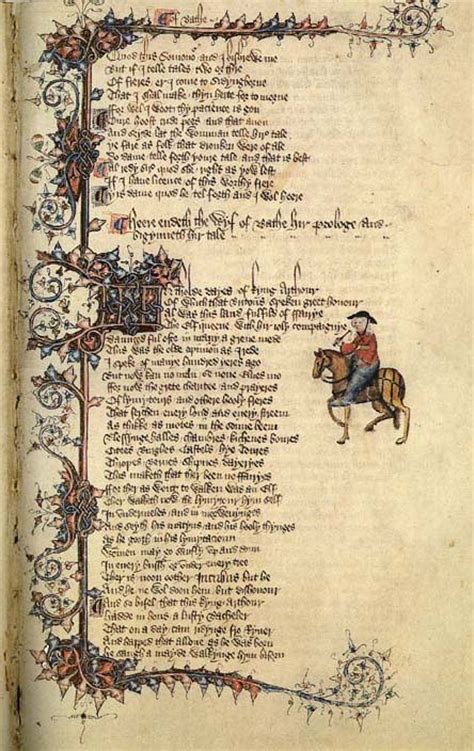 Of Bathe
Quod this Somono and I bishrewe me
But if I telle tales two or thre
Of freres er I come to Sidyngborne
That I shal make thyn herte for to morne
ffor wel I woot thy pacience is gon
Oure hoost cride pees and that anon
And seyde lat the womman telle hire tale
Ye fare as folk that dronken were of ale
Do dame telle forth youre tale and that is best
Al redy sire quod she right as yow lest
If I have licence of this worthy frere
Yis dame quod he tel forth and I wol heere
Heere endeth the Wyf of Bathe hir prologe and
bigynneth hir tale
In tholde dayes of kyng Arthour
Of which that Britons speken greet honour
Al was this land fulfild of ffairye
The Elf queene with hir ioly compaignye
Daunced ful ofte in many a grene mede
This was the olde opinion as I rede
I speke of manye hundred yeres ago
But now kan no man se none elves mo
ffor now the grete charitee and prayeres
Of lymytours and othere hooly freres
That serchen every lond and every streem
As thikke as motes in the sonne beem
Blessynge halles chambres kichenes boures
Citees Burghes Castels hye Toures
Thropes Bernes Shipnes dayeryes
This maketh that ther been no ffairyes
ffor ther as wont to walken was an Elf
Ther walketh now the lymytour hym self
In undermeles and in morwenynges
And seyth his matyns and his hooly thynges
As he gooth in his lymytacioun
Wommen may go saufly up and doun
In every bussh or under every tree
Ther is noon oother Incubus but he
And he ne wol doon hem but dishonour
And so bifel that this kyng Arthour
Hadde in hous a lusty Bacheler
That on a day cam ridynge fro Ryver
And happed that allone as he was born
He saugh a mayde walkynge hym biforn